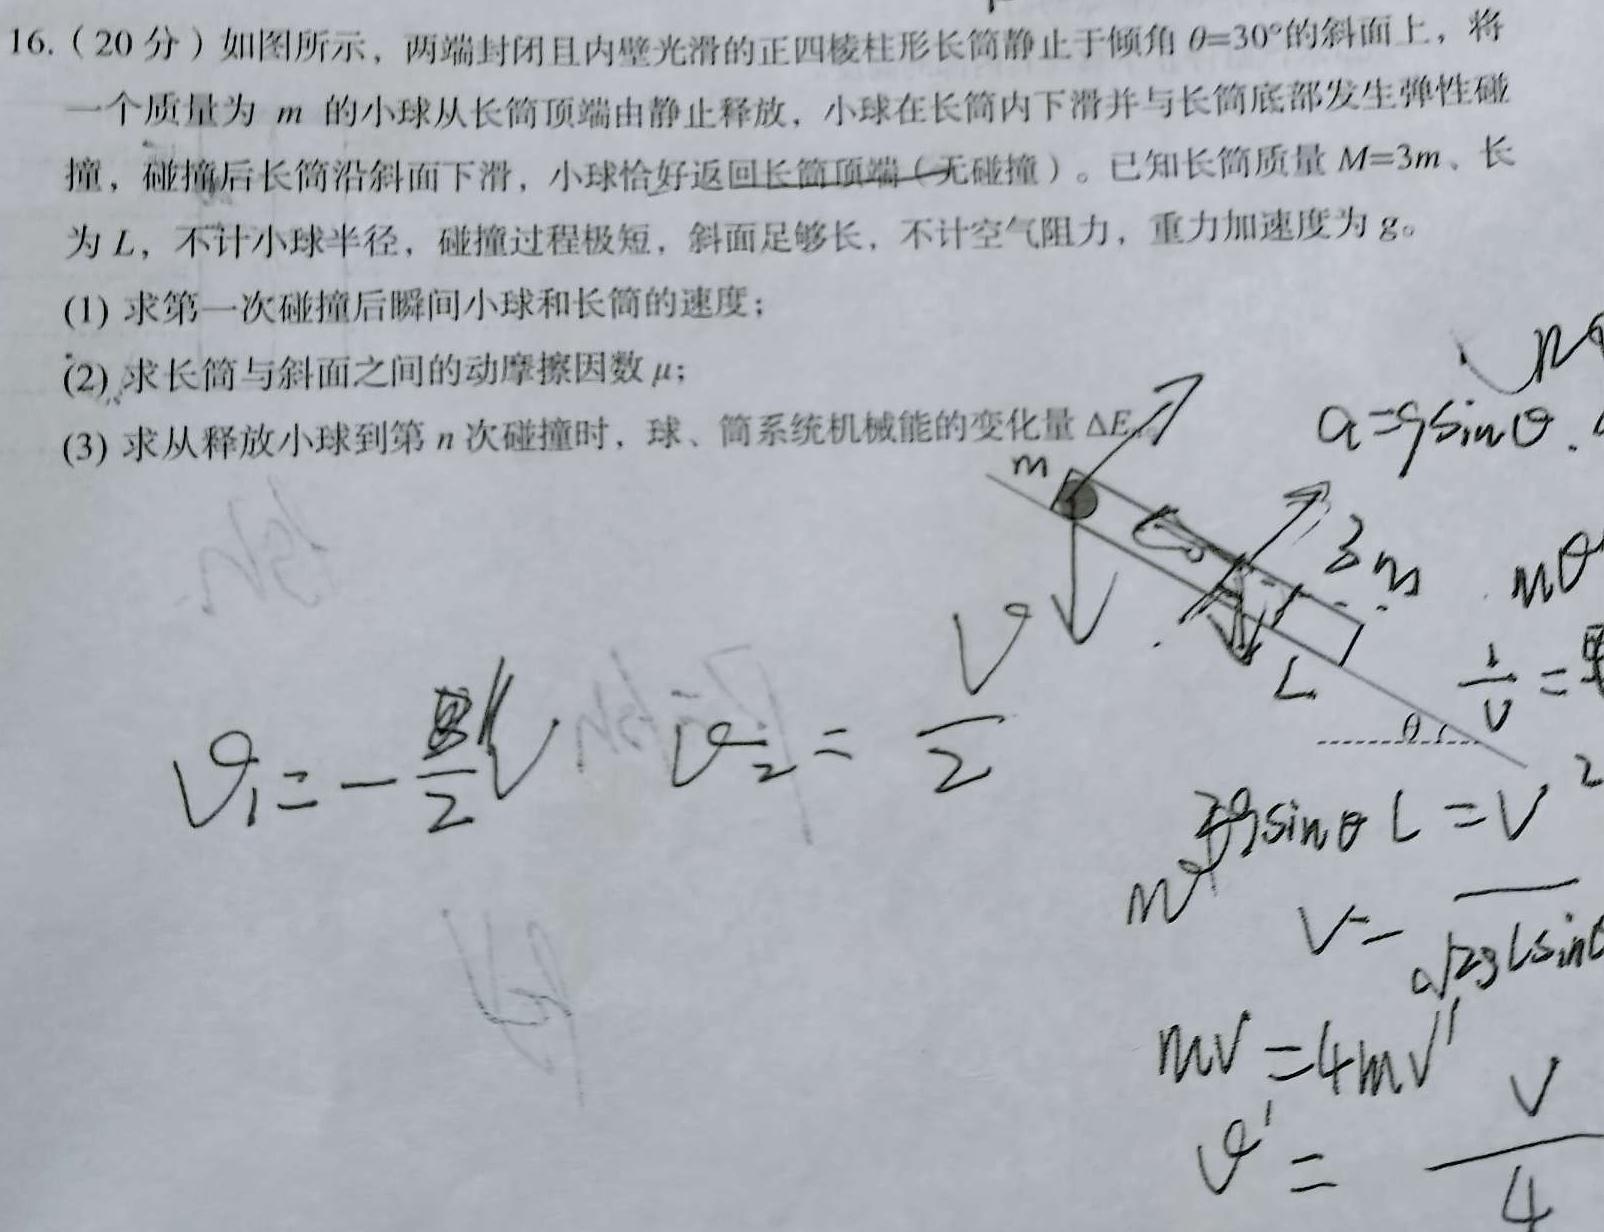 16.（20分）如图所示，两端封闭且内壁光滑的正四棱柱形长筒静止于倾角 θ=30°的斜面上，将
一个质量为 m 的小球从长筒顶端由静止释放，小球在长筒内下滑并与长筒底部发生弹性碰
撞，碰撞后长筒沿斜面下滑，小球恰好返回长筒顶端（无碰撞）。已知长筒质量 M=3m、长
为 L，不计小球半径，碰撞过程极短，斜面足够长，不计空气阻力，重力加速度为 g。
(1) 求第一次碰撞后瞬间小球和长筒的速度；
(2) 求长筒与斜面之间的动摩擦因数 μ；
(3) 求从释放小球到第 n 次碰撞时，球、筒系统机械能的变化量 ΔE
a=gsinθ.
m
3m
L
θ
v₁=-
2
v₂=
v
2
gsinθ L=v²
v=
√2gLsinθ
mv=4mv'
v'=
v
4